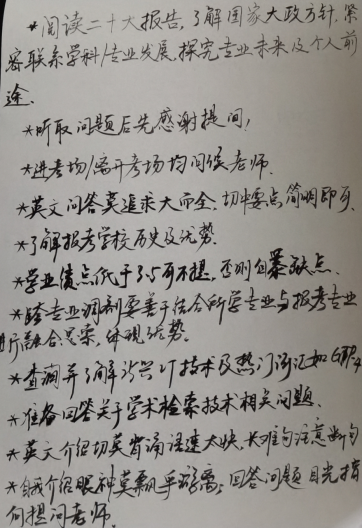 *阅读二十大报告,了解国家大政方针,紧
密联系学科/专业发展,探究专业未来及个人前
途.
*听取问题后先感谢提问;
*进考场/离开考场均问候老师.
*英文问答莫追求大而全,切中要点简明即可.
*了解报考学校历史及优势.
*学业绩点低于3.5可不提,否则自暴缺点.
*跨专业调剂要善于结合所学专业与报考专业
进行融合思索,体现优势.
*查询并了解新兴IT技术及热门词汇如GPT4
*准备回答关于学术检索技术相关问题.
*英文介绍切莫背诵语速太快,长难句注意断句
*自我介绍眼神莫飘乎游离;回答问题目光指
向提问老师.